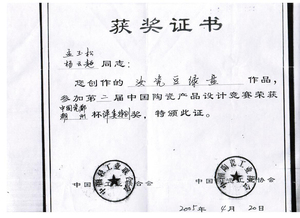 获奖证书
孟玉松
杨云超 同志：
您创作的 汝瓷豆绿壶 作品，
参加第二届中国陶瓷产品设计竞赛荣获
中国瓷都
杯 奖，特颁此证。
中国轻工业联合会
中国陶瓷工业协会
2005年 4月 20日